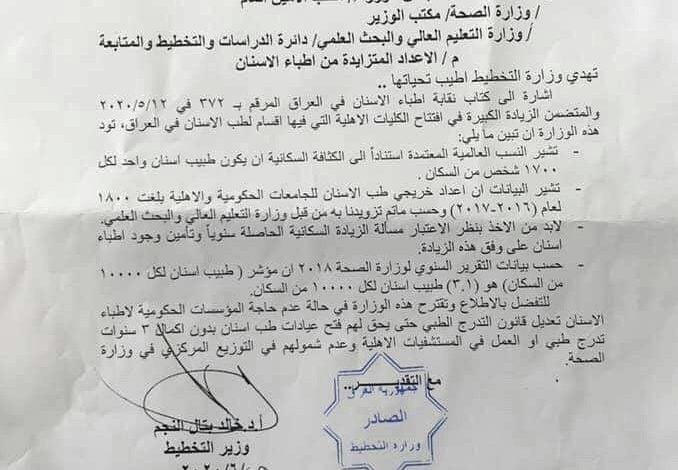 / وزارة الصحة/ مكتب الوزير
/ وزارة التعليم العالي والبحث العلمي/ دائرة الدراسات والتخطيط والمتابعة
م / الاعداد المتزايدة من اطباء الاسنان
تهدي وزارة التخطيط اطيب تحياتها ..
اشارة الى كتاب نقابة اطباء الاسنان في العراق المرقم بـ ٣٧٢ في ٢٠٢٠/٥/١٢
والمتضمن الزيادة الكبيرة في افتتاح الكليات الاهلية التي فيها اقسام لطب الاسنان في العراق، تود
هذه الوزارة ان تبين ما يلي:
- تشير النسب العالمية المعتمدة استناداً الى الكثافة السكانية ان يكون طبيب اسنان واحد لكل
١٧٠٠ شخص من السكان.
- تشير البيانات ان اعداد خريجي طب الاسنان للجامعات الحكومية والاهلية بلغت ١٨٠٠
لعام (٢٠١٦-٢٠١٧) وحسب ماتم تزويدنا به من قبل وزارة التعليم العالي والبحث العلمي.
- لابد من الاخذ بنظر الاعتبار مسألة الزيادة السكانية الحاصلة سنوياً وتأمين وجود اطباء
اسنان على وفق هذه الزيادة.
- حسب بيانات التقرير السنوي لوزارة الصحة ٢٠١٨ ان مؤشر ( طبيب اسنان لكل ١٠٠٠٠
من السكان) هو (٣,١) طبيب اسنان لكل ١٠٠٠٠ من السكان.
للتفضل بالاطلاع وتقترح هذه الوزارة في حالة عدم حاجة المؤسسات الحكومية لاطباء
الاسنان تعديل قانون التدرج الطبي حتى يحق لهم فتح عيادات طب اسنان بدون اكمال ٣ سنوات
تدرج طبي او العمل في المستشفيات الاهلية وعدم شمولهم في التوزيع المركزي في وزارة
الصحة.
مع التقديـــر..
جمهورية العراق
الصادر
وزارة التخطيط
أ.د.خالد بتال النجم
وزير التخطيط